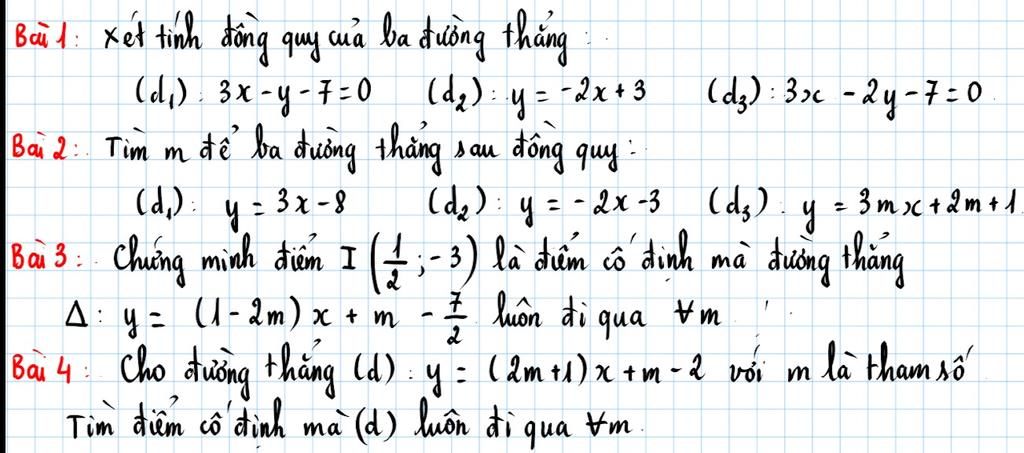 Bài 1: Xét tính đồng quy của ba đường thẳng:
(d₁): 3x - y - 7 = 0 (d₂): y = -2x + 3 (d₃): 3x - 2y - 7 = 0
Bài 2: Tìm m để ba đường thẳng sau đồng quy:
(d₁): y = 3x - 8 (d₂): y = -2x - 3 (d₃): y = 3mx + 2m + 1
Bài 3: Chứng minh điểm I (1/2 ; -3) là điểm cố định mà đường thẳng
Δ: y = (1 - 2m) x + m - 7/2 luôn đi qua ∀m
Bài 4: Cho đường thẳng (d): y = (2m + 1) x + m - 2 với m là tham số
Tìm điểm cố định mà (d) luôn đi qua ∀m.